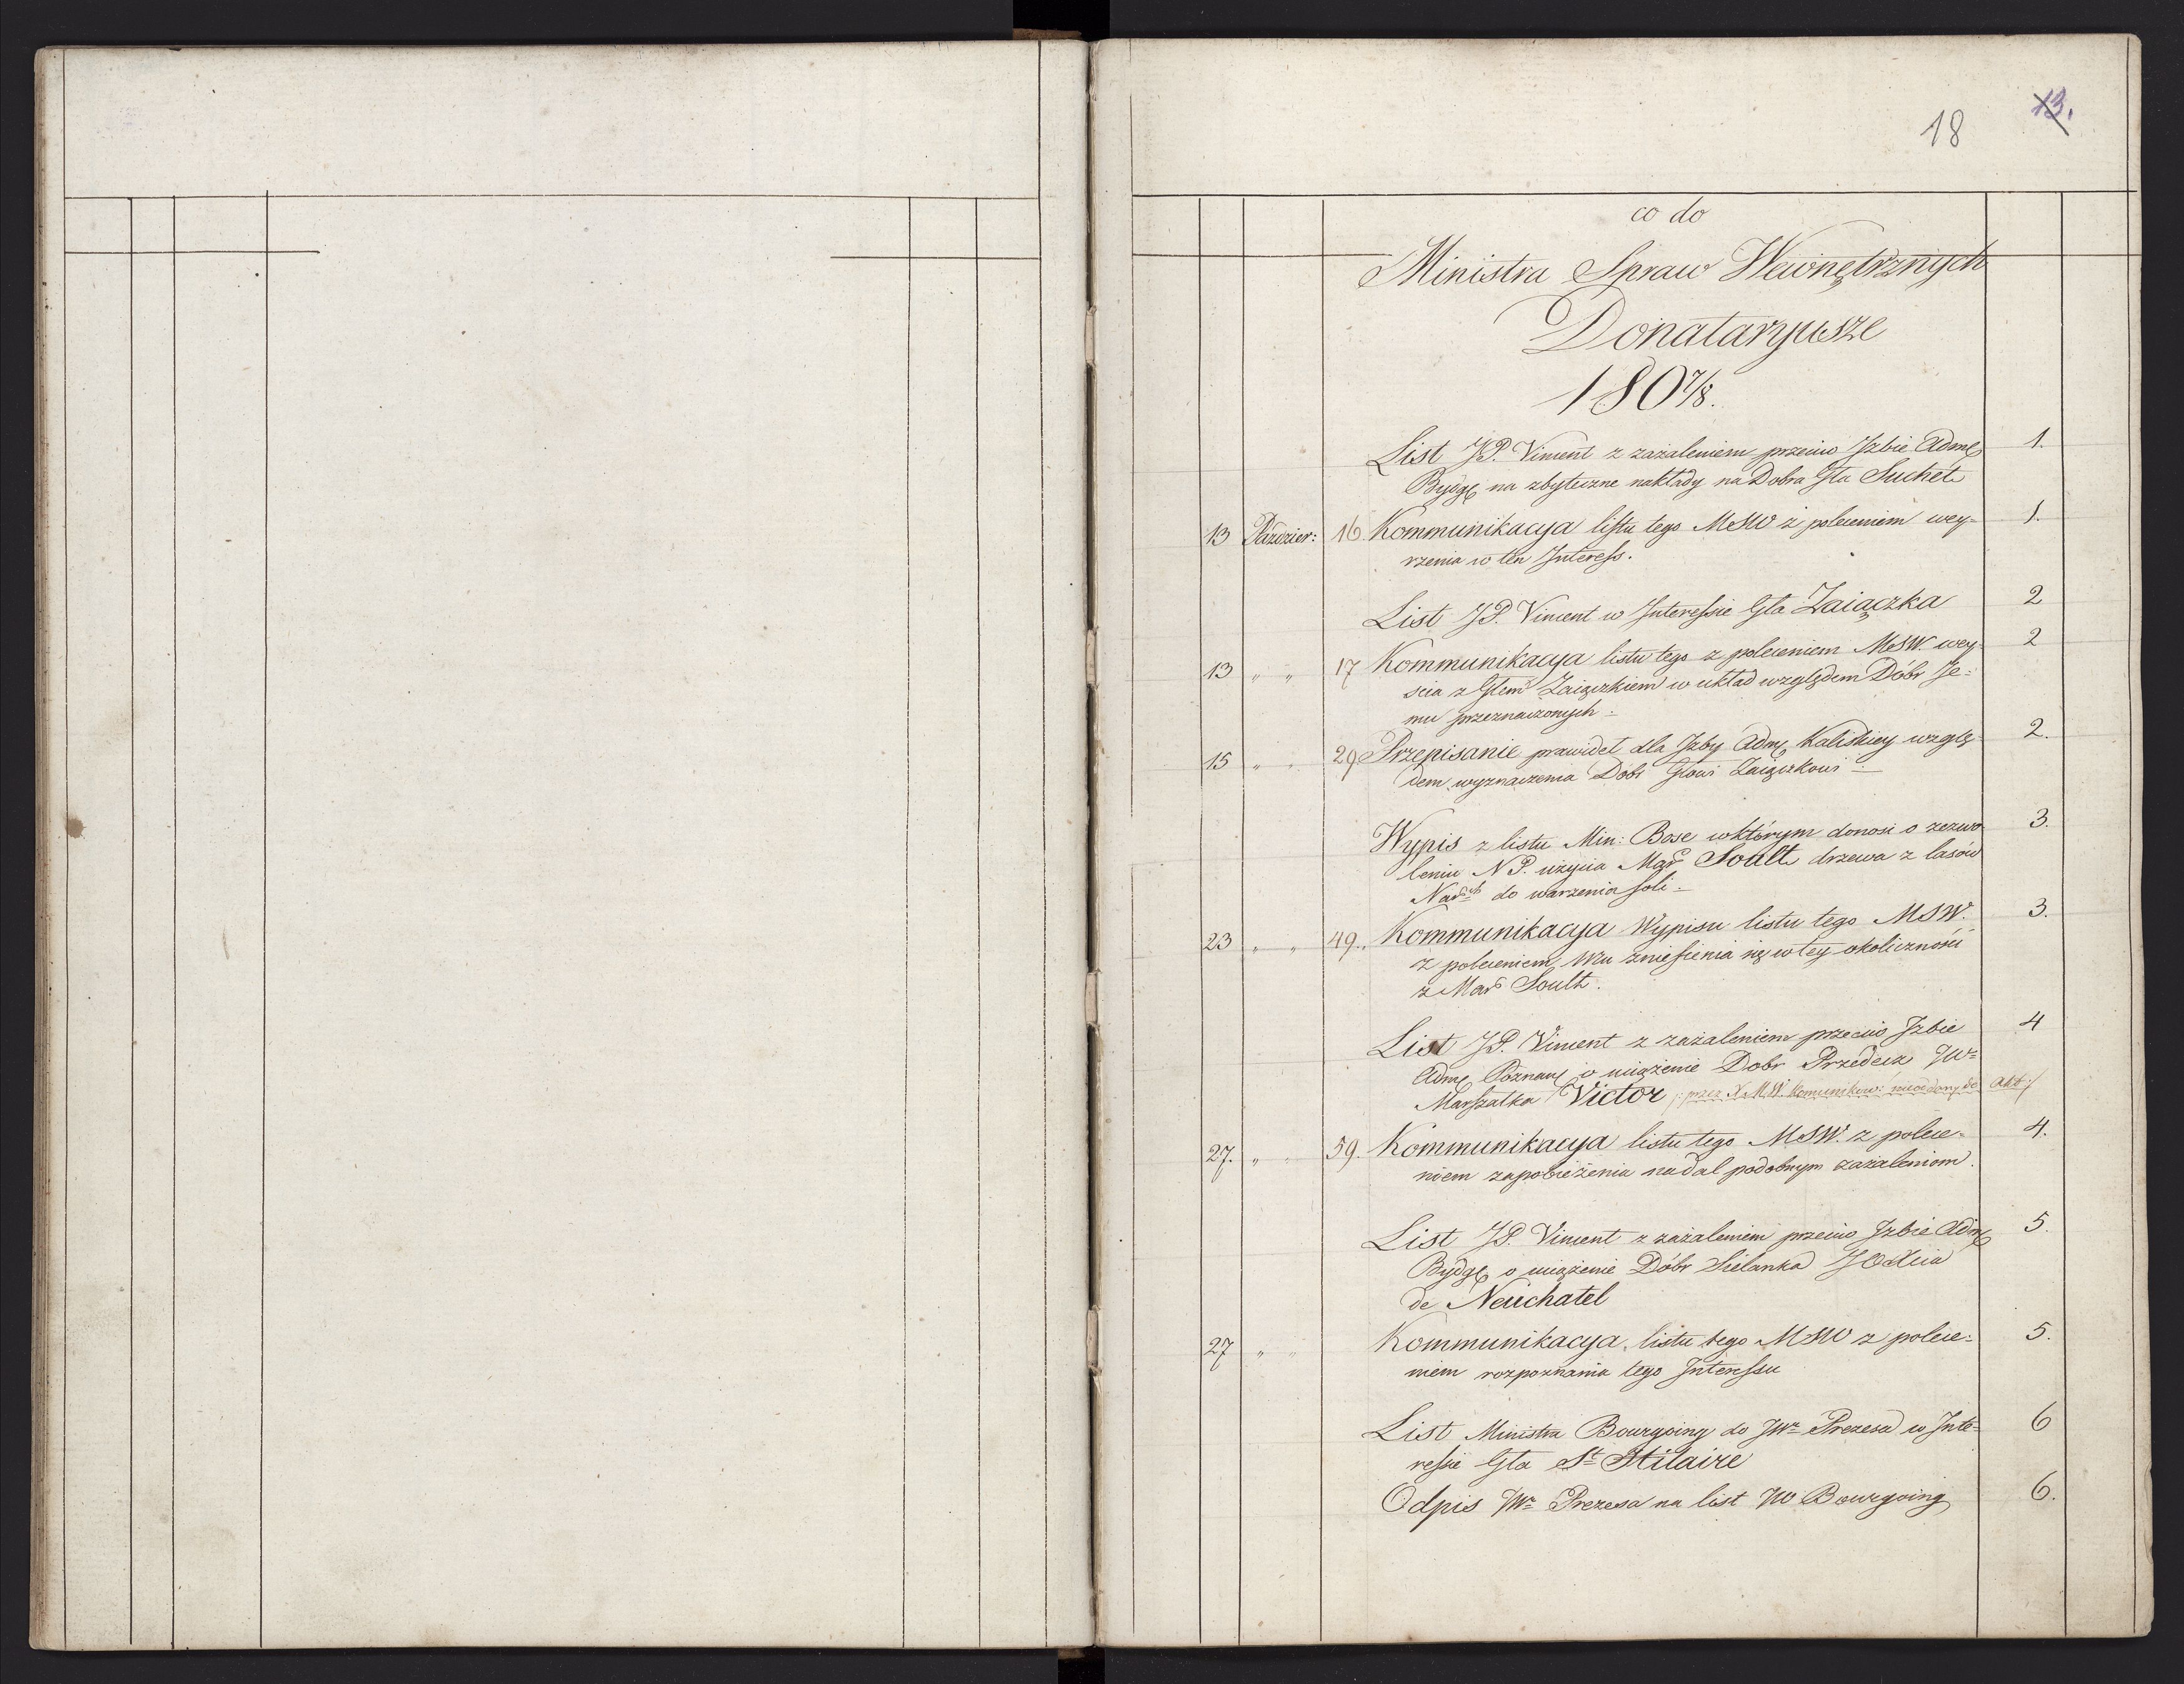 18 13.
co do
Ministra Spraw Wewnętrznych
Donataryusze
180 7/8.
List JP. Vincent z zażaleniem przeciw Izbie Adm 1.
Bydg na zbyteczne nakłady na Dobra Gła Suchet
13 Paździer: 16. Kommunikacya listu tego MSW z poleceniem wey- 1.
rzenia w ten Interess.
List JP. Vincent w Interessie Gła Zaiączka 2
13 " " 17 Kommunikacya listu tego z poleceniem MSW. wey- 2
ścia z Głem Zaiączkiem w układ względem Dóbr Je-
mu przeznaczonych.
15 " " 29 Przepisanie prawideł dla Izby Adm Kaliskiey wzglę- 2.
dem wyznaczenia Dóbr Głowi Zaiączkowi
Wypis z listu Min: Bose w którym donosi o zezwo- 3.
leniu NP. użycia Mar Soult drzewa z lasów
Nar do warzenia soli.
23 " " 49. Kommunikacya Wypisu listu tego MSW. 3.
z poleceniem Mu zniesienia się w tey okoliczności
z Mar Soult.
List JP. Vincent z zażaleniem przeciw Izbie 4
Adm Poznan o uciążenie Dobr Przedecz JW
Marszałka Victor /: przez MSW Komunikow: do Akt :/
27. " " 59. Kommunikacya listu tego MSW. z polece- 4.
niem zapobieżenia nadal podobnym zażaleniom.
List JP. Vincent z zażaleniem przeciw Izbie Adm 5.
Bydg o uciążenie Dóbr Sielanka
de Neuchatel
27 " " Kommunikacya listu tego MSW z polece- 5.
niem rozpoznania tego Interessu
List Ministra Bourgoing do JW Prezesa w Inte- 6
ressie Gła St Hilaire
Odpis JW Prezesa na list JW Bourgoing 6.